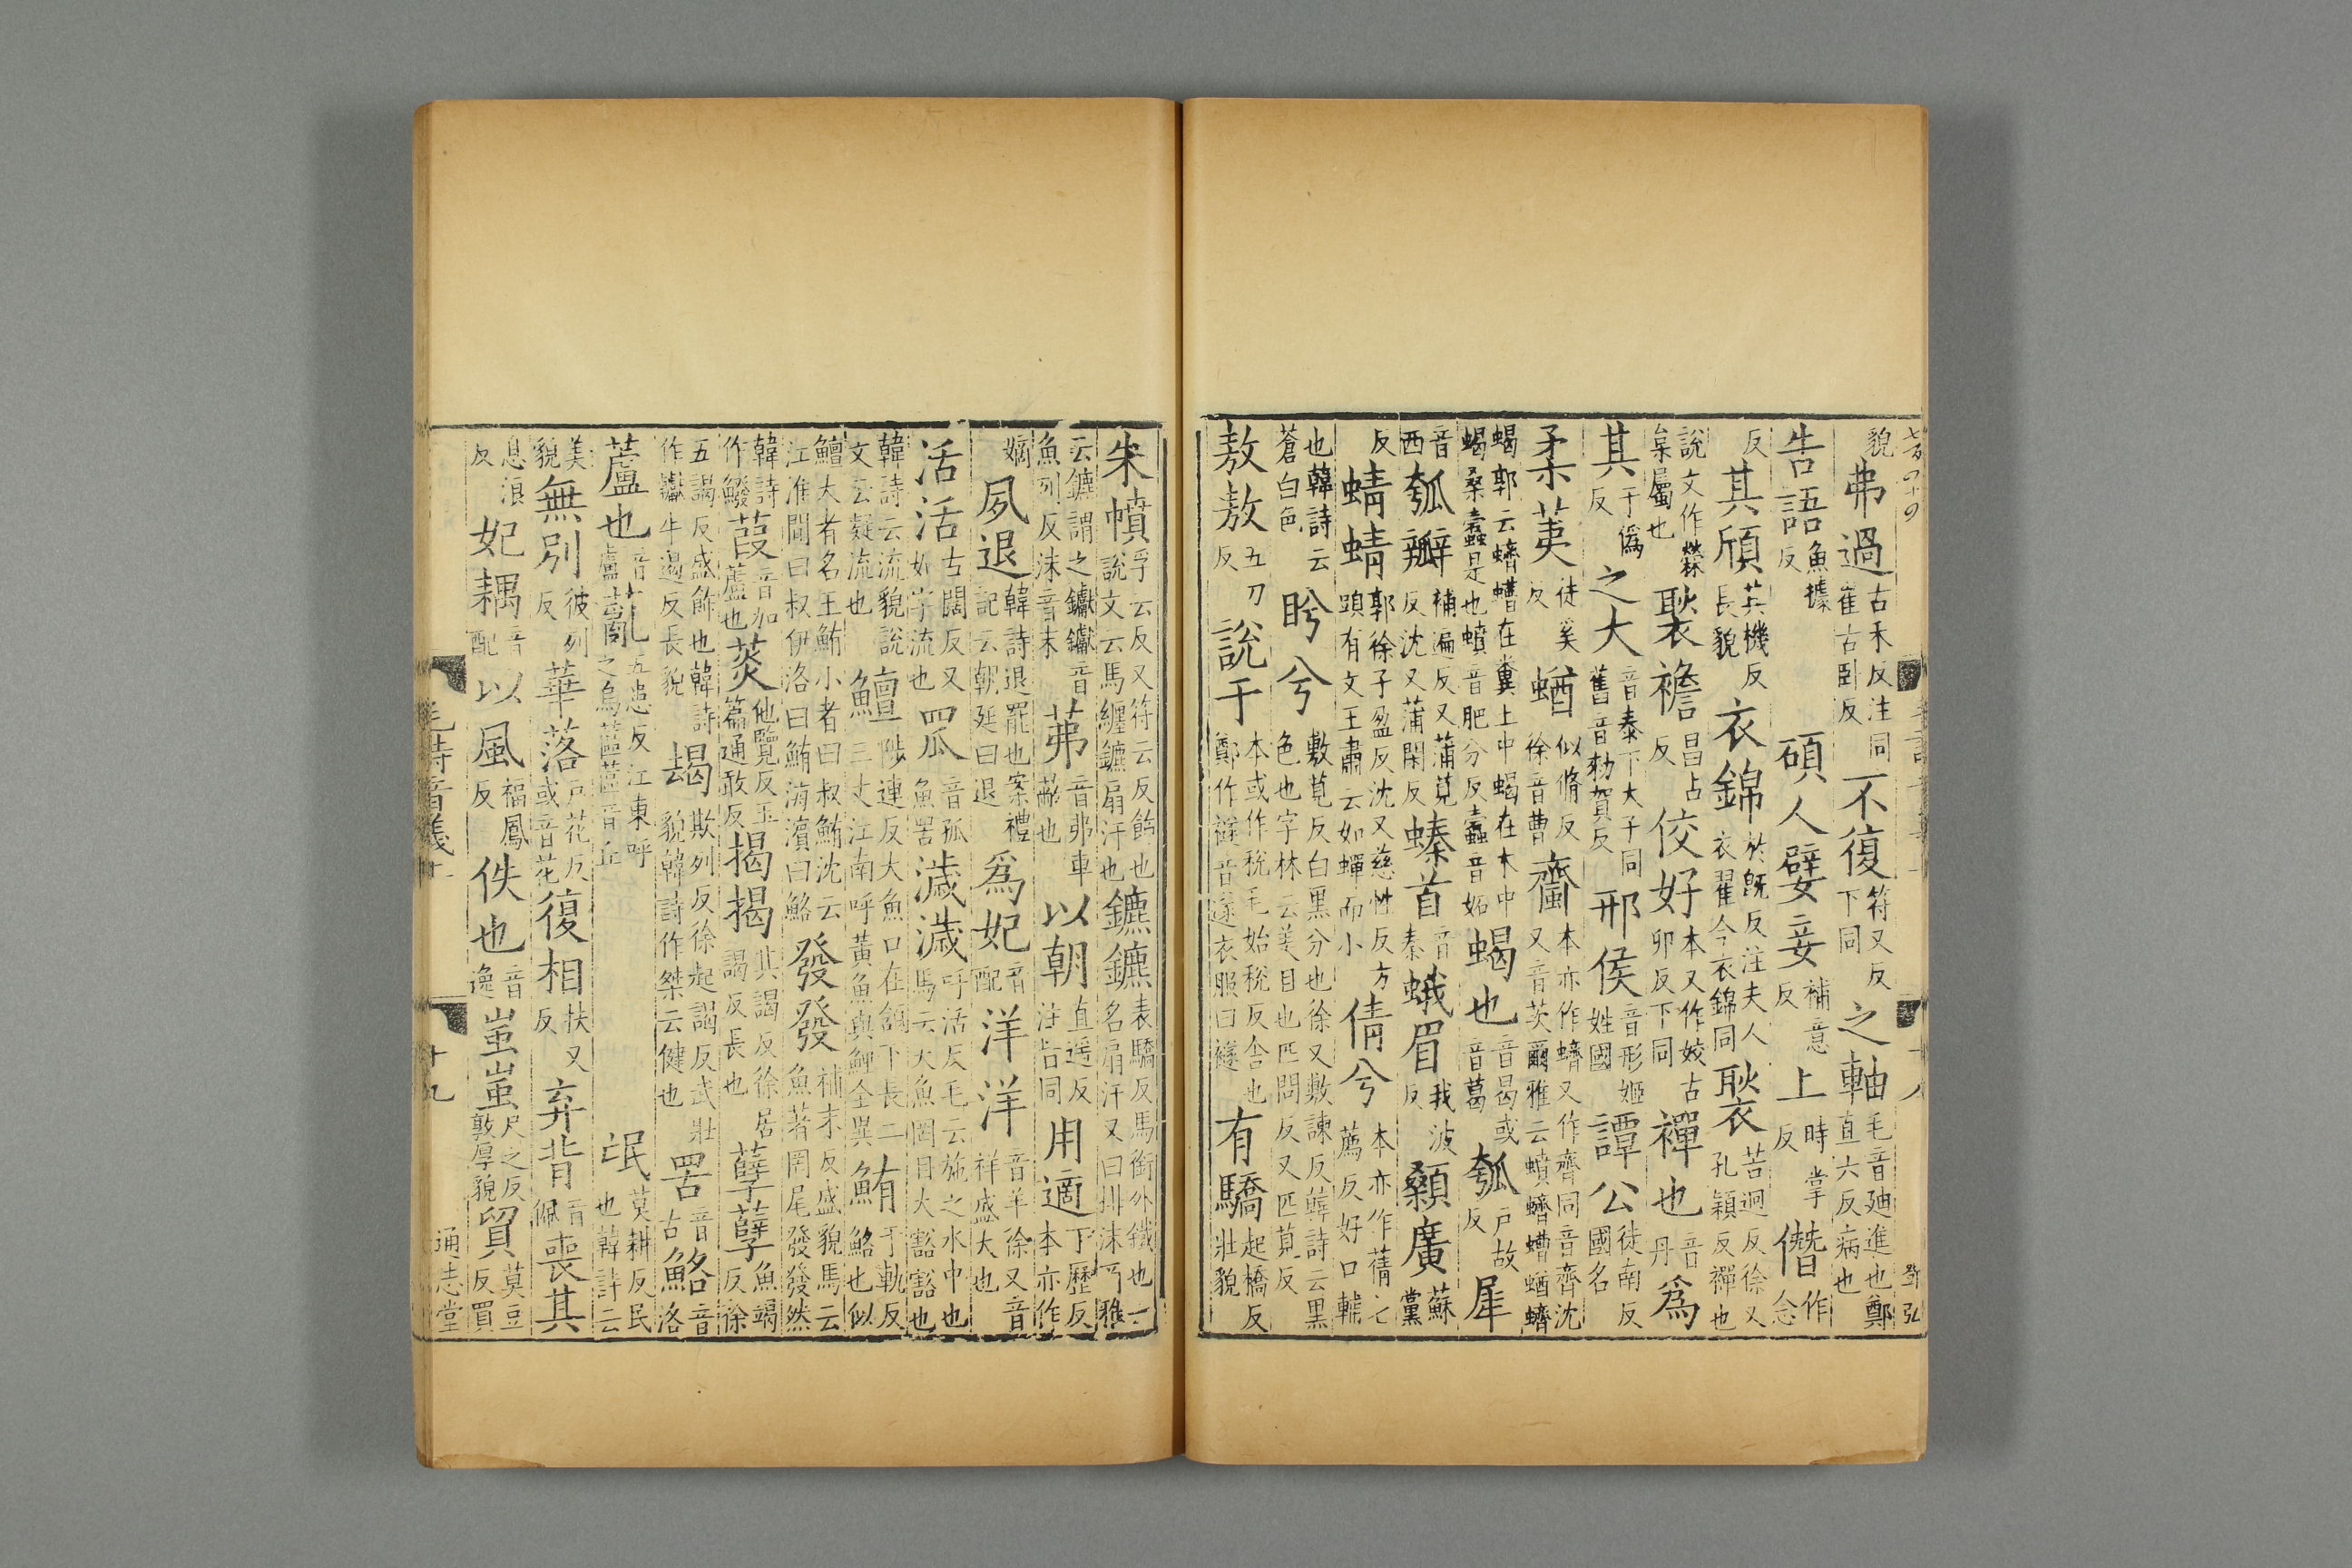 七百四十四 十八 鄧弘
貌弗過古禾反注同崔古臥反不復符又反下同之軸毛音迪進也鄭直六反病也
告語魚據反碩人嬖妾補意反上時掌反僭作念
反其頎其機反長貌衣錦於旣反注夫人衣翟今衣錦同褧苦迥反徐又孔穎反襌也
說文作檾枲屬也褧襜昌占反佼好本又作姣古卯反下同襌也音丹爲
其于僞反之大音泰下大子同舊音勑賀反邢侯音形姬姓國譚公徒南反國名
柔荑徒奚反蝤似脩反徐音曹齏本亦作蠐又作齊同音齊沈又音茨爾雅云蟦蠐螬蝤蠐
蝎郭云蠐螬在糞土中蝎在木中蝎桑蠹是也蟦音肥分反蠹音妬蝎也音曷或音葛瓠戶故反犀
音西瓠瓣補遍反又蒲莧反沈又蒲閑反螓首音秦蛾眉我波反顙廣蘇黨
反蜻蜻郭徐子盈反沈又慈性反方頭有文王肅云如蟬而小倩兮本亦作蒨七薦反好口輔
也韓詩云蒼白色盻兮敷莧反白黑分也徐又敷諫反韓詩云黑色也字林云美目也匹問反又匹莧反
敖敖五刀反說于本或作稅毛始稅反舍也鄭作襚音遂衣服曰襚有驕起橋反壯貌
朱幩孚云反又符云反飾也說文云馬纏鑣扇汗也鑣鑣表驕反馬銜外鐵也一名扇汗又曰排沫爾雅
云鑣謂之钀钀音魚列反沫音末茀音弗車蔽也以朝直遥反注皆同用適下歷反本亦作
嫡夙退韓詩退罷也案禮記云朝廷曰退爲妃音配洋洋音羊徐又音祥盛大也
活活古闊反又如字流也罛音孤魚罟濊濊呼活反毛云施之水中也馬云大魚罔目大豁豁也
韓詩云流貌說文云凝流也鱣陟連反大魚口在頷下長二三丈江南呼黃魚與鯉全異鮪于軌反鮥也似
鱣大者名王鮪小者曰叔鮪沈云江淮間曰叔伊洛曰鮪海濱曰鮥發發補末反盛貌馬云魚著罔尾發發然
韓詩作鱍葭音加蘆也菼他覽反玉篇通敢反揭揭其謁反徐居謁反長也孽孽魚竭反徐
五謁反盛飾也韓詩作钀牛遏反長貌朅欺列反徐起謁反武壯貌韓詩作桀云健也罟音古鮥音洛
蘆也音盧薍五患反江東呼之烏蓲蓲音丘氓莫耕反民也韓詩云
美貌無別彼列反華落戶花反或音花復相扶又反弃背音佩喪其
息浪反妃耦音配以風福鳳反佚也音逸蚩蚩尺之反敦厚貌貿莫豆反買
毛詩音義上 十九 通志堂